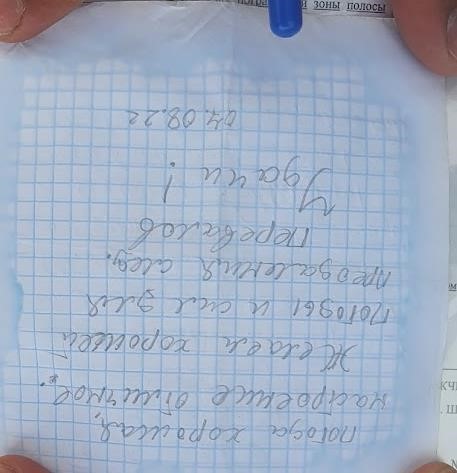 погода хорошая,
настроение отличное.
Желаем хорошей
погоды и сил для
преодаления след.
перевалов
Удачи!
04.08.22
зоны полосы